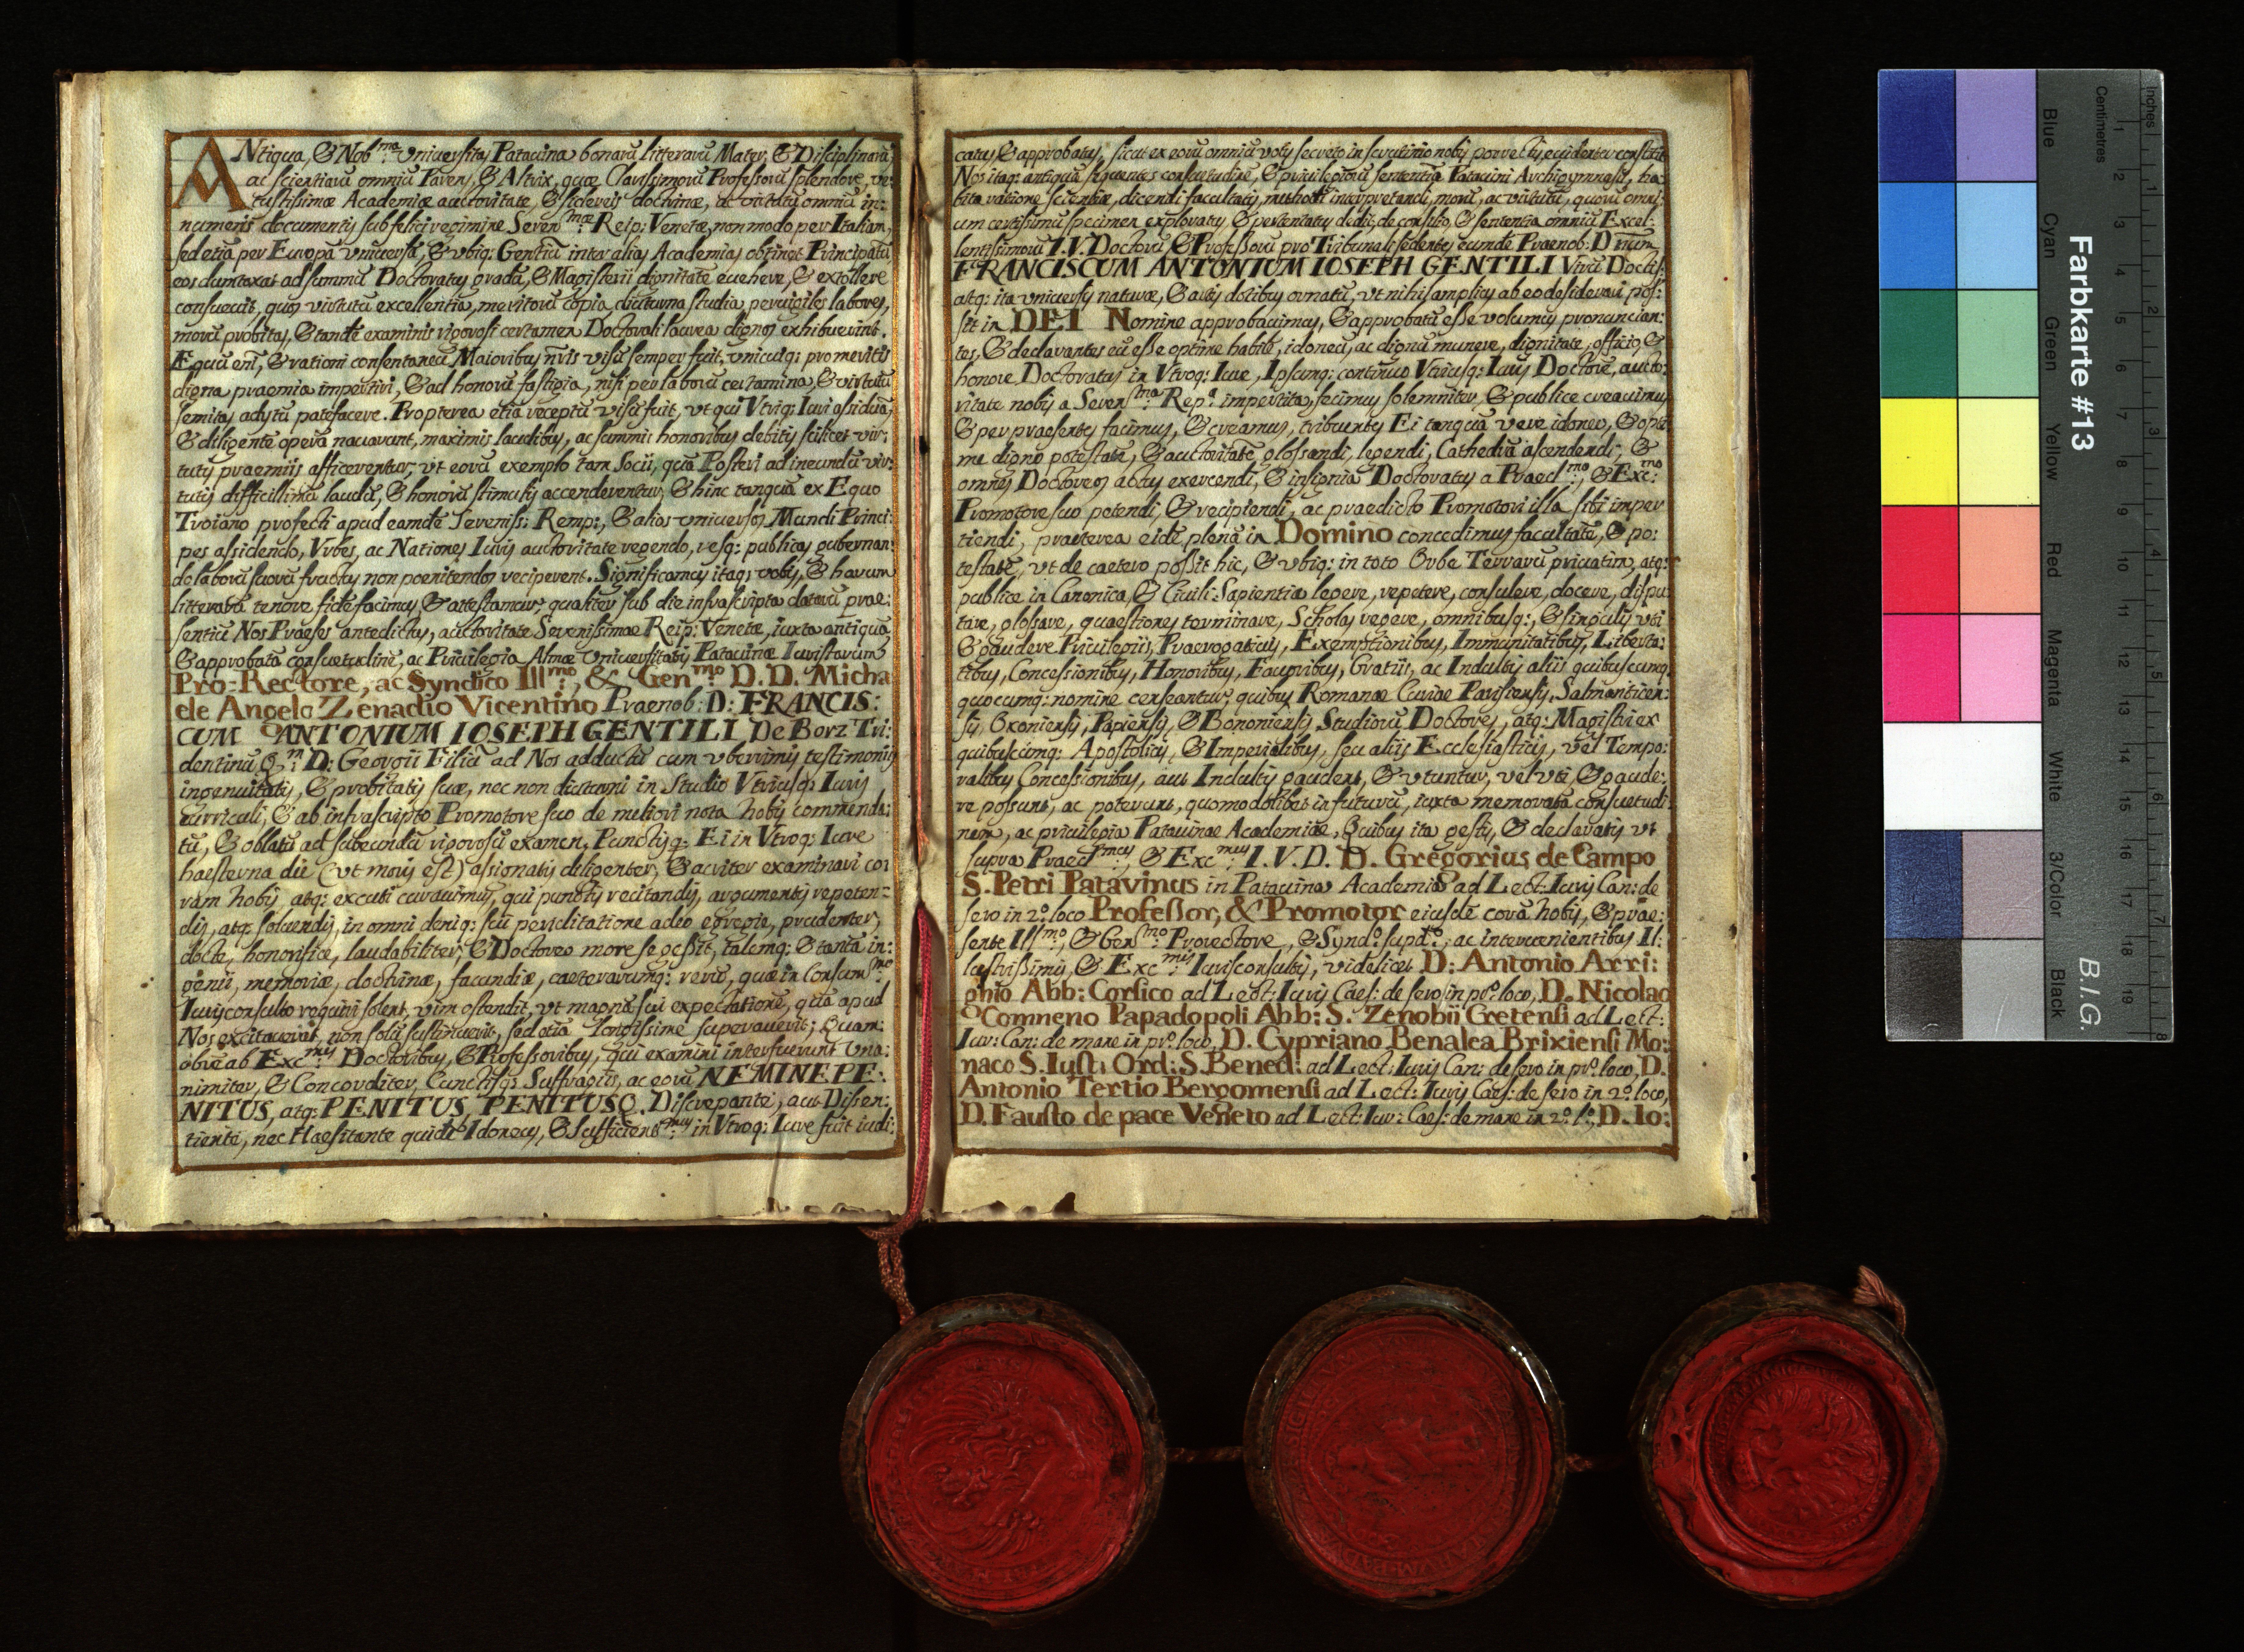 ANtiqua, & Nob.ma Vniuersitas Patauina bonarū litterarū Mater, & Disciplinarū,
ac scientiarū omniū Parens, & Altrix, quæ Clarissimorū Professorū splendore, ve:
tustissimæ Academiæ auctoritate, & sidereis doctrinæ, ac virtutis omniū in:
numeris documentis sub felici regimine Seren.mæ Reip: Venetæ, non modo per Italiam,
sed etiā per Europā vniuersā, & vbiq: Gentiū inter alias Academias obtinet Principatū
eos dumtaxat ad summū Doctoratus gradū, & Magisterii dignitatē euehere, & extollere
consueuit, quos virtutū excellentia, meritorū copia, diuturna studia, peruigiles labores,
morū probitas, & tandē examinis rigorosi certamen Doctorali laurea dignos exhibuerint.
Equū em̄, & rationi consentaneū Maioribus nr̄is visū semper fuit, vnicuiq: pro meritis
digna praemia impertiri, & ad honorū fastigia, nisi per laborū certamina, & virtutū
semitas adytū patefacere. Propterea etiā receptū visū fuit, vt qui Vtriq: Iuri assiduā,
& diligentē operā nauarunt, maximis laudibus, ac summis honoribus debitis scilicet vir:
tutis praemiis afficerentur, vt eorū exemplo tam Socii, quā Posteri ad ineundū vir:
tutis difficillimū laudū, & honorū stimulis accenderentur, & hinc tanquā ex Equo
Troiano profecti apud eamdē Sereniss: Remp:, & alios vniuersos Mundi Princi:
pes assidendo, Vrbes, ac Nationes Iuris auctoritate regendo, resq: publicas gubernan:
do laborū suorū fructus non poenitendos reciperent. Significamus itaq: vobis, & harum
litterarū tenore fidē facimus, & attestamur, qualiter sub die infrascripta datarū prae:
sentiū Nos Praeses antedictus, auctoritate Serenissimae Reip: Venetæ, iuxta antiquā,
& approbatā consuetudinē, ac Priuilegia Almæ Vniuersitatis Patauinæ Iuristarum
Pro-Rectore, ac Syndico Ill.mo, & Gen.mo D. D. Micha
ele Angelo Zenadio Vicentino Praenob: D: FRANCIS:
CUM ANTONIUM IOSEPH GENTILI De Borz Tri:
dentinū Q.m D: Georgii Filiū ad Nos adductū cum vberrimis testimoniis
ingenuitatis, & probitatis suæ, nec non diuturni in Studio Vtriusq: Iuris
curriculi, & ab infrascripto Promotore suo de meliori nota nobis commenda:
tū, & oblatū ad subeundū rigorosū examen, Punctisq: Ei in Vtroq: Iure
haesterna die (vt moris est) assignatis diligenter, & acriter examinari co:
ram nobis, atq: excuti curauimus, qui punctis recitandis, argumentis repeten=
dis, atq: soluendis, in omni deniq: sui periclitatione adeo egregie, prudenter,
docte, honorifice, laudabiliter, & Doctoreo more se gessit, talemq: & tantā in:
genii, memoriæ, doctrinæ, facundiæ, caeterarumq: rerū, quæ in Consum.mo
Iurisconsulto requiri solent, vim ostendit, vt magnā sui expectationē, quā apud
Nos excitauerat, non solū sustinuerit, sed etiā longissime superauerit; Quam:
obrē ab Exc.mis Doctoribus, & Professoribus, qui examini interfuerunt Vna:
nimiter, & Concorditer, Cunctisq: Suffragiis, ac eorū NEMINE PE:
NITUS, atq: PENITUS, PENITUSQ. Discrepante, aut Dissen:
tiente, nec Haesitante quidē Idoneus, & Sufficient.mus in Vtroq: Iure fuit iudi:
catus, & approbatus, sicut ex eorū omniū votis secreto in scrutinio nobis porrectis, euidenter constitit
Nos itaq: antiquā sequentes consuetudinē, & priuilegiorū sententiā Patauini Archigymnasii, ha:
bita ratione scientiæ, dicendi facultatis, methodi interpretandi, morū, ac virtutū, quorū omni:
um certissimū specimen exploratus, & pertentatus dedit, de consilio, & sententia omniū Excel:
lentissimorū I. V. Doctorū, & Professorū pro Tribunali sedentes eundē Praenob: D num
FRANCISCUM ANTONIUM IOSEPH GENTILI Virū Doctis:
atq: ita vniuersis naturæ, & artis dotibus ornatū, vt nihil amplius ab eo desiderari pos:
sit in DEI Nomine approbauimus, & approbatū esse volumus pronuncian:
tes, & declarantes eū esse optime habilē, idoneū, ac dignū munere, dignitate, officio, &
honore Doctoratus in Vtroq: Iure, Ipsumq: continuo Vtriusq: Iuris Doctorē, aucto:
ritate nobis a Seren.ma Rep.a impertita, fecimus solemniter, & publice creauimus
& per praesentes facimus, & creamus, tribuentes Ei tanquā vere idoneo, & opti
me digno potestatē, & auctoritatē glossandi, legendi, Cathedrā ascendendi, &
omnes Doctoreos actus exercendi, & insignia Doctoratus a Praecl.mo, & Exc.mo
Promotore suo petendi, & recipiendi, ac praedicto Promotori illa sibi imper
tiendi, praeterea eidē plenā in Domino concedimus facultatē, & po:
testatē, vt de caetero possit hic, & vbiq: in toto Orbe Terrarū priuatim, atq:
publice in Canonica, & Ciuili Sapientia legere, repetere, consulere, docere, dispu
tare, glosare, quaestiones terminare, Scholas regere, omnibusq:, & singulis vti
& gaudere Priuilegiis, Praerogatiuis, Exemptionibus, Immunitatibus, Liberta:
tibus, Concessionibus, Honoribus, Fauoribus, Gratiis, ac Indultis aliis quibuscumq:
quocumq: nomine censeantur, quibus Romanae Curiae Parisiensis, Salmanticen:
sis, Oxoniensis, Papiensis, & Bononiensis Studiorū Doctores, atq: Magistri ex
quibuscumq: Apostolicis, & Imperialibus, seu aliis Ecclesiasticis, vel Tempo:
ralibus Concessionibus, aut Indultis gaudent, & vtuntur, vel vti, & gaude:
re possunt, ac poterunt, quomodolibet in futurū, iuxta memoratā consuetudi:
nem, ac priuilegia Patauinae Academiæ, Quibus ita gestis, & declaratis vt
supra Praecl.mus, & Exc.mus I. V. D. D. Gregorius de Campo
S. Petri Patavinus in Patauina Academia ad Lect: Iuris Can: de
sero in 2.o loco Professor, & Promotor eiusdē corā nobis, & prae:
sente Ill.mo, & Gen.mo Prorectore, & Synd.o supd.o, ac interuenientibus Il:
lustrissimis, & Exc.mis Iurisconsultis, videlicet D: Antonio Arri:
ghio Abb: Corsico ad Lect: Iuris Caes: de sero in pr.o loco, D. Nicolao
Comneno Papadopoli Abb: S. Zenobii Cretensi ad Lect:
Iur: Can: de mane in pr.o loco, D. Cypriano Benalea Brixiensi Mo:
naco S. Iusti Ord: S. Bened: ad Lect: Iuris Can: de sero in pr.o loco, D.
Antonio Tertio Bergomensi ad Lect: Iuris Caes: de sero in 2.o loco,
D. Fausto de pace Veneto ad Lect: Iur: Caes: de mane in 2.o l.o, D. Io:
Farbkarte #13
B.I.G.
Inches
Centimetres
Blue
Cyan
Green
Yellow
Red
Magenta
White
3/Color
Black
1 2 3 4 5 6 7 8 9 10 11 12 13 14 15 16 17 18 19
1 2 3 4 5 6 7 8